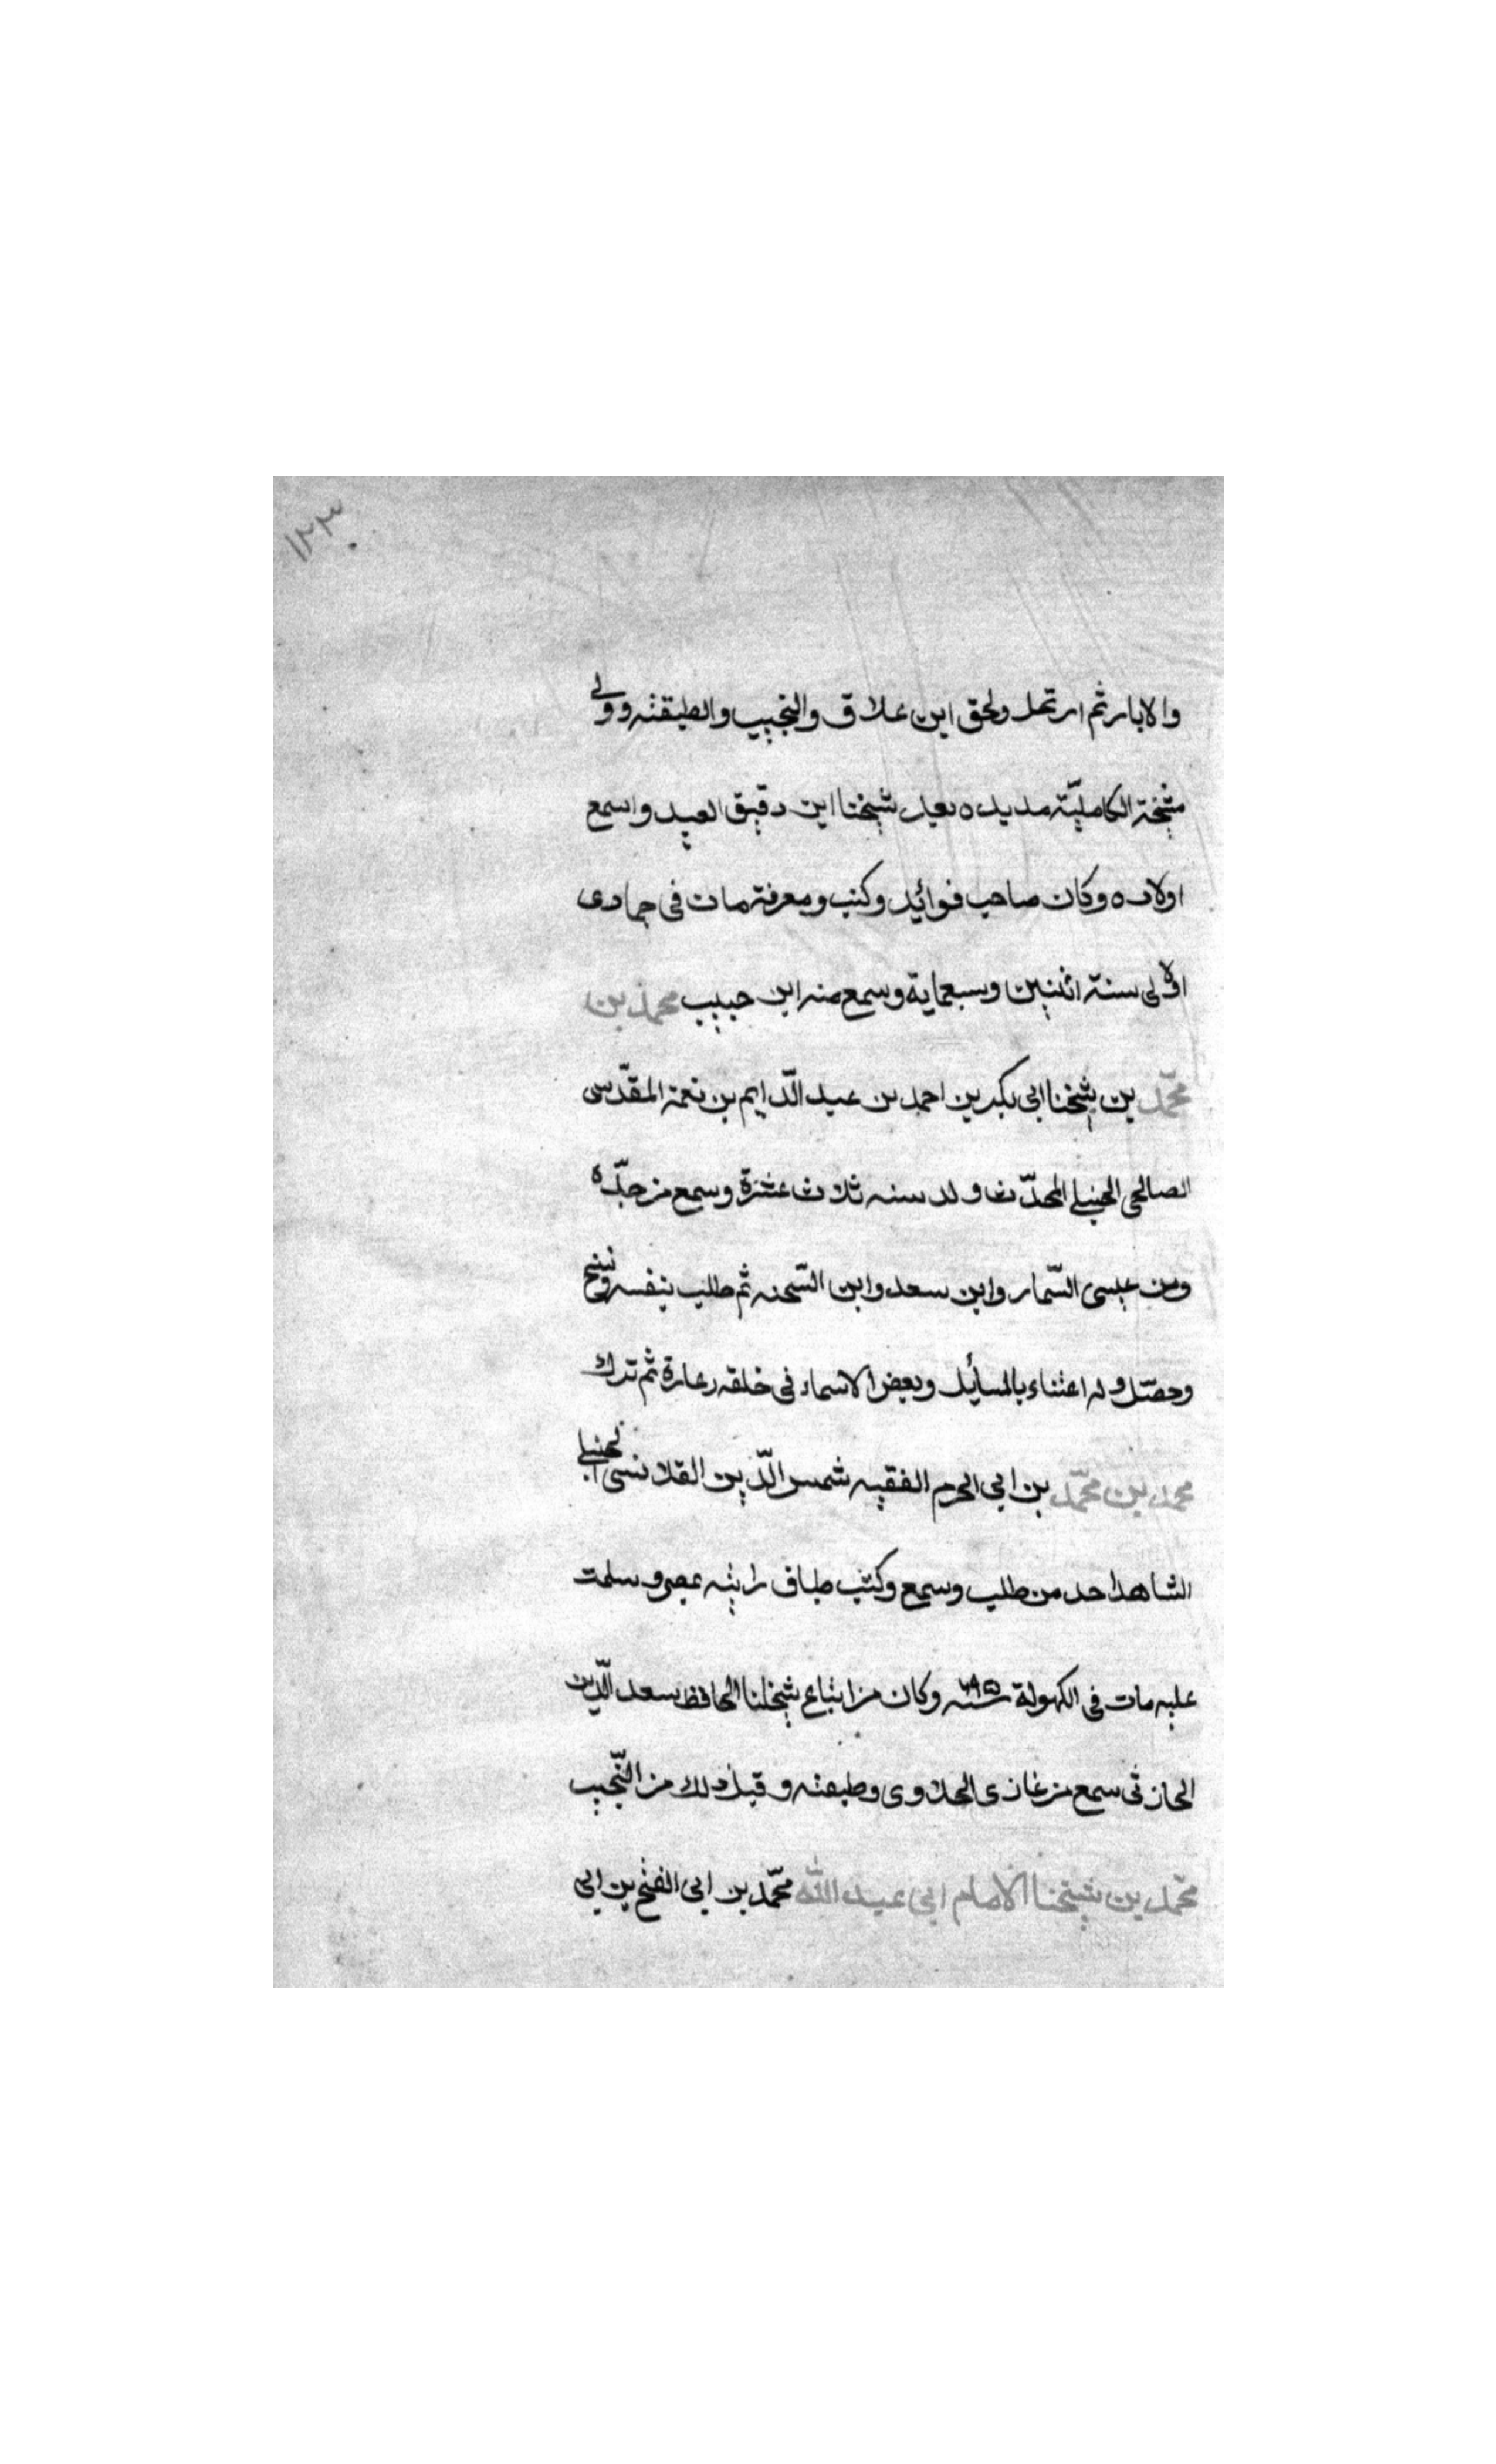 ١٢٣
والابار ثم ارتحل ولحق ابن علاق والنجيب والطبقته وولى
مشيخة الكاملية مديده بعد شيخنا ابن دقيق العيد واسمع
اولاده وكان صاحب فوائد وكتب ومعرفة مات في جمادى
الاولى سنة اثنين وسبعماية وسمع منه ابن حبيب محمد بن
محمّد بن شيخنا ابي بكر بن احمد بن عبد الدّايم بن نعمة المقدّسى
الصالحى الحنبلى المحدّث ولد سنه ثلاث عشرة وسمع من جدّه
ومن عيسى السّمار وابن سعد وابن الشّحنه ثم طلب بنفسه ونسخ
وحصّل وله اعتناء بالمسأيل وبعض الاسماء في خلقه زعارة ثم ترك
محمد بن محمّد بن ابي الحرم الفقيه شمس الدّين القلانسى الحنبلى
الشاهد احد من طلب وسمع وكتب طباق رايته بمصر وسلمت
عليه مات في الكهولة سنه ٧٩٥ وكان من اتباع شيخنا الحافظ سعد الدّين
الحارثى سمع من غازى الحلاوى وطبقته وقبل ذلك من النّجيب
محمّد بن شيخنا الامام ابي عبد الله محمّد بن ابي الفتح بن ابي